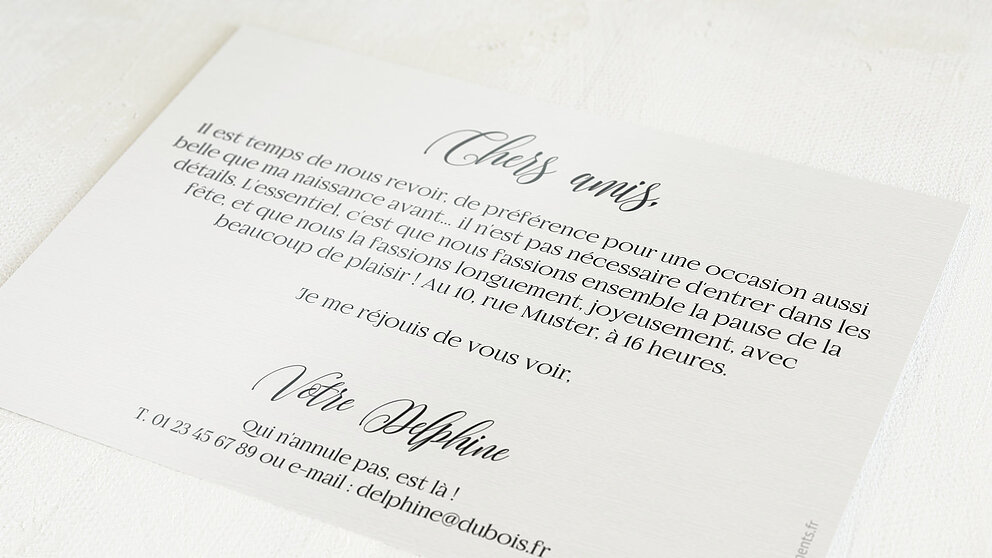 Chers amis,
Il est temps de nous revoir, de préférence pour une occasion aussi
belle que ma naissance avant... il n'est pas nécessaire d'entrer dans les
détails. L'essentiel, c'est que nous fassions ensemble la pause de la
fête, et que nous la fassions longuement, joyeusement, avec
beaucoup de plaisir ! Au 10, rue Muster, à 16 heures.
Je me réjouis de vous voir,
Votre Delphine
Qui n'annule pas, est là !
T. 01 23 45 67 89 ou e-mail : delphine@dubois.fr